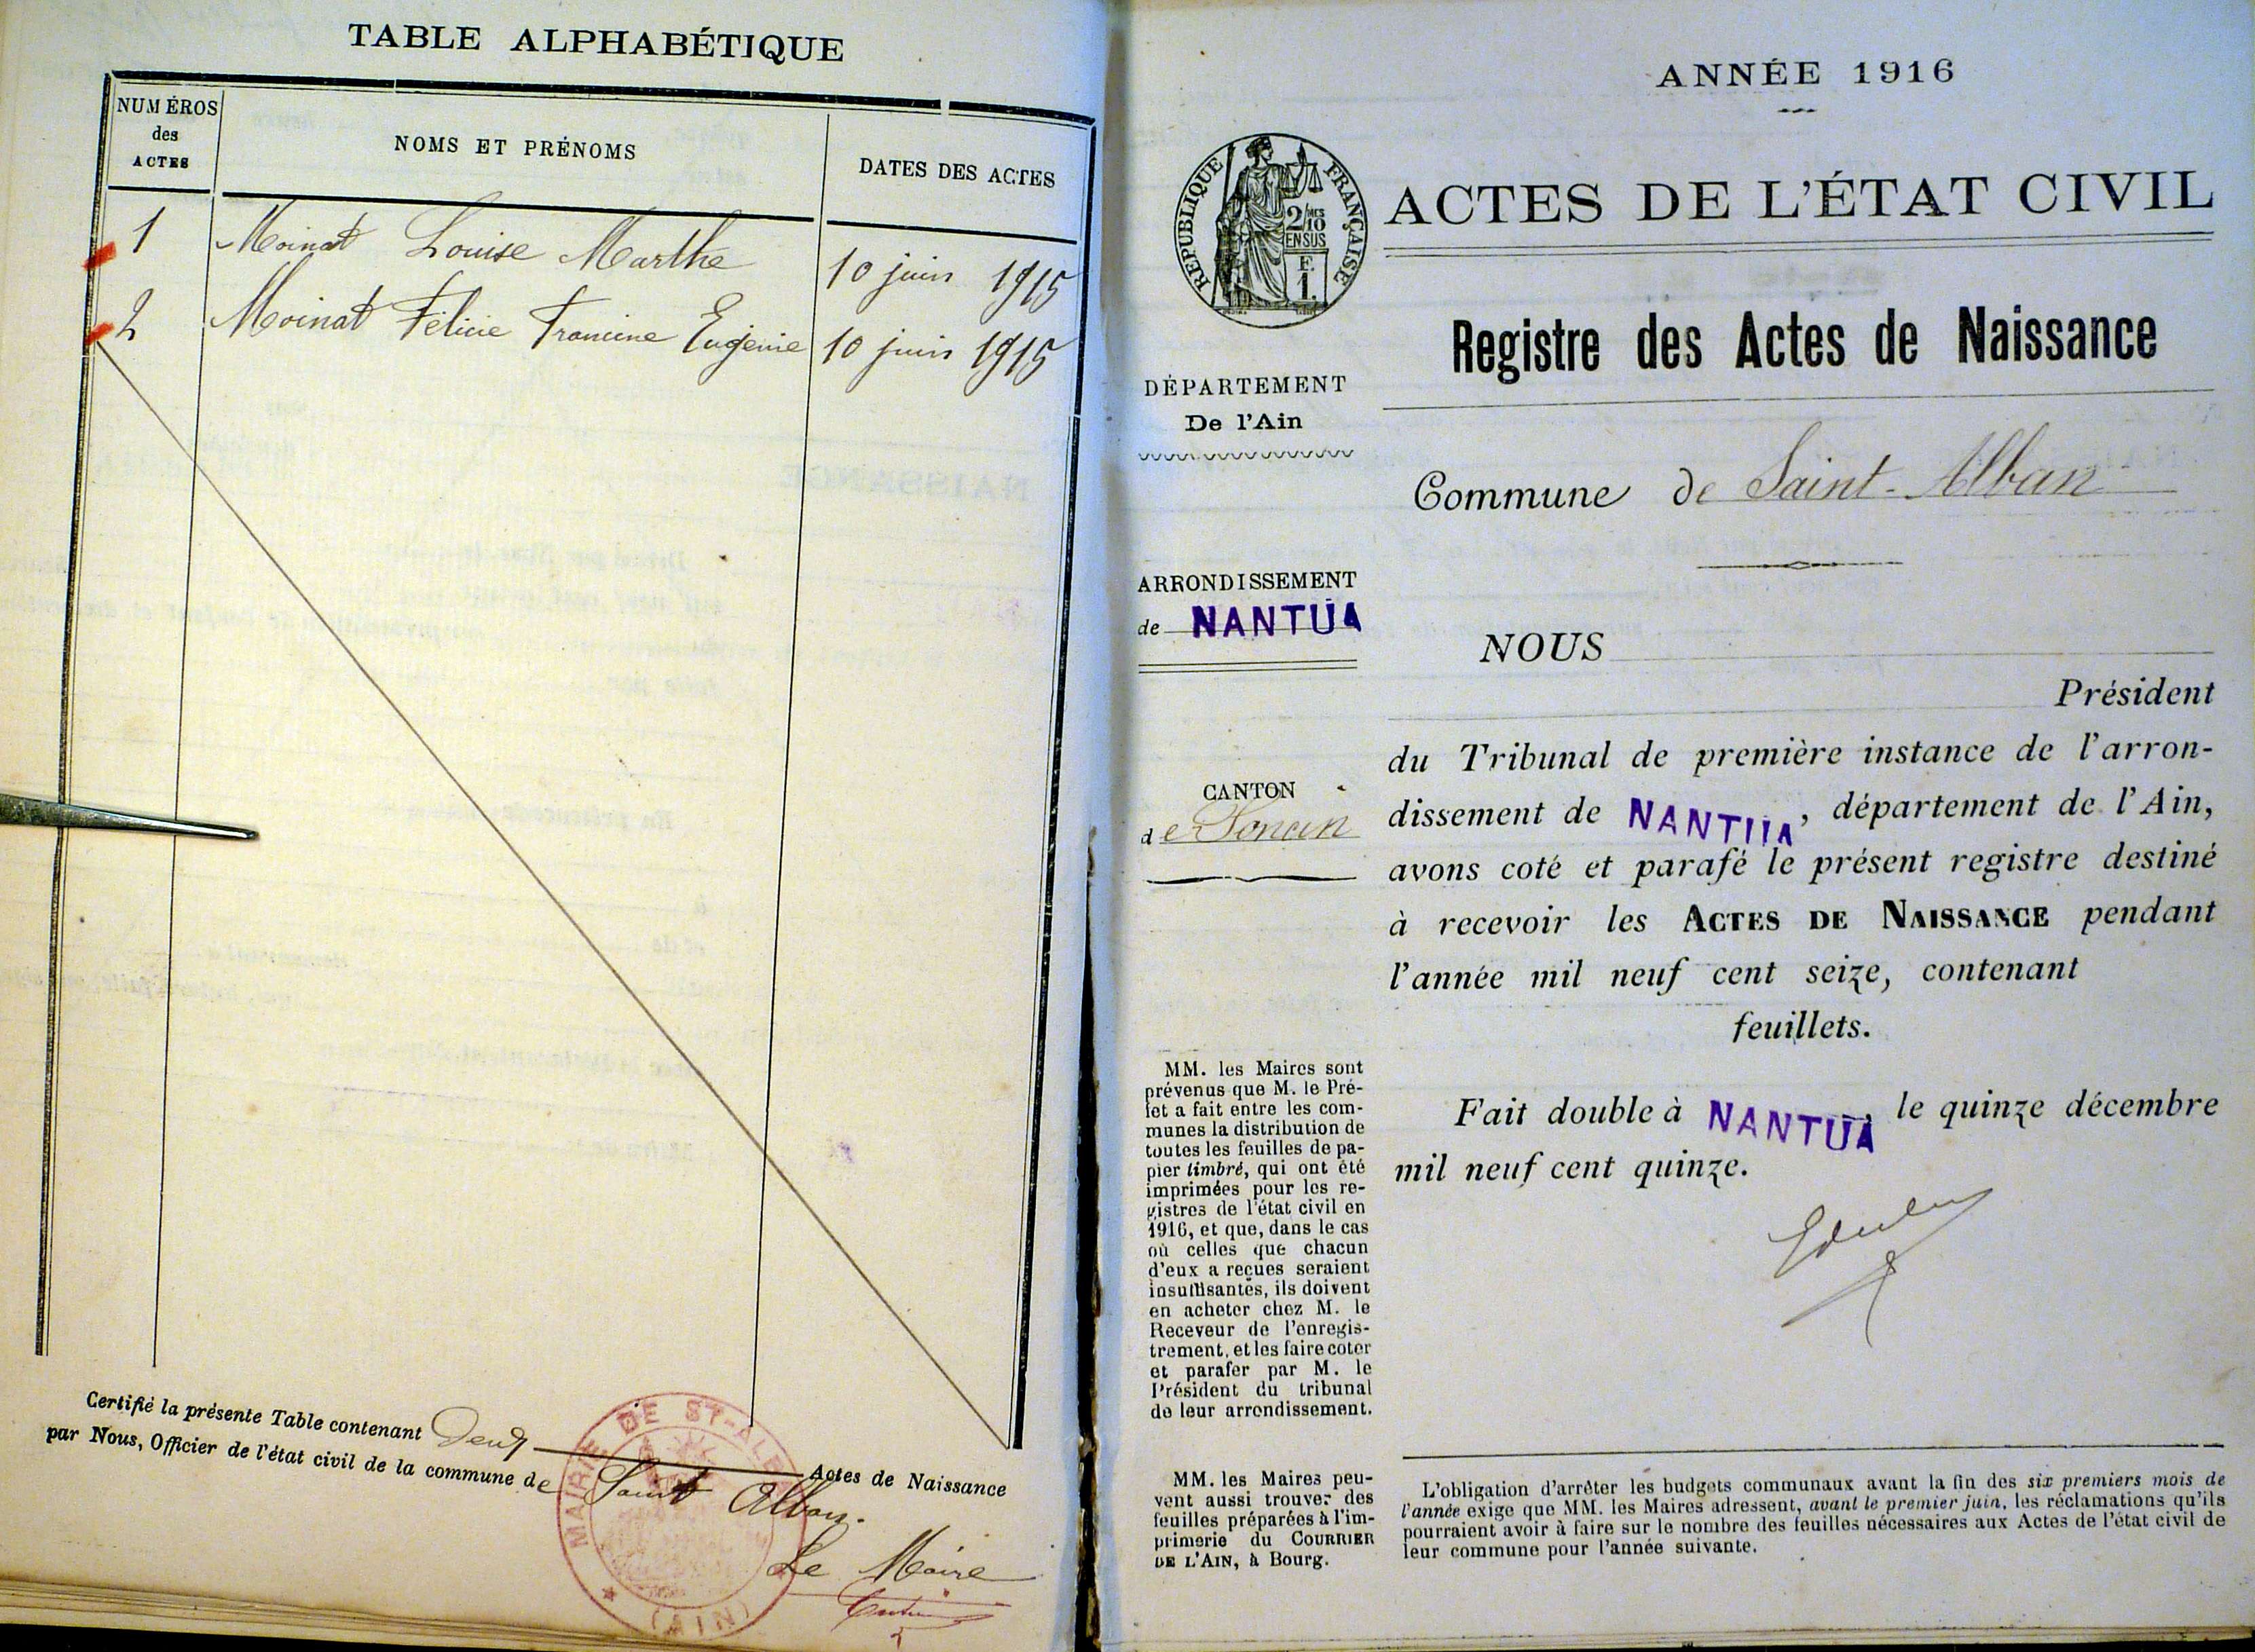 TABLE ALPHABÉTIQUE
NUMÉROS
des
ACTES
NOMS ET PRÉNOMS
DATES DES ACTES
1 Moinat Louise Marthe 10 juin 1915
2 Moinat Félicie Francine Eugénie 10 juin 1915
Certifié la présente Table contenant Deux Actes de Naissance
par Nous, Officier de l'état civil de la commune de Saint Alban.
Le Maire
MAIRIE DE ST-ALBAN
(AIN)
ANNÉE 1916
RÉPUBLIQUE FRANÇAISE
2/10 MES
EN SUS
F.
1.
ACTES DE L'ÉTAT CIVIL
Registre des Actes de Naissance
DÉPARTEMENT
De l'Ain
Commune de Saint-Alban
ARRONDISSEMENT
de NANTUA
CANTON
de Poncin
NOUS
Président
du Tribunal de première instance de l'arron-
dissement de NANTUA, département de l'Ain,
avons coté et parafé le présent registre destiné
à recevoir les ACTES DE NAISSANCE pendant
l'année mil neuf cent seize, contenant
feuillets.
Fait double à NANTUA, le quinze décembre
mil neuf cent quinze.
MM. les Maires sont
prévenus que M. le Pré-
fet a fait entre les com-
munes la distribution de
toutes les feuilles de pa-
pier timbré, qui ont été
imprimées pour les re-
gistres de l'état civil en
1916, et que, dans le cas
où celles que chacun
d'eux a reçues seraient
insuffisantes, ils doivent
en acheter chez M. le
Receveur de l'enregis-
trement, et les faire coter
et parafer par M. le
Président du tribunal
de leur arrondissement.
MM. les Maires peu-
vent aussi trouver des
feuilles préparées à l'im-
primerie du COURRIER
DE L'AIN, à Bourg.
L'obligation d'arrêter les budgets communaux avant la fin des six premiers mois de
l'année exige que MM. les Maires adressent, avant le premier juin, les réclamations qu'ils
pourraient avoir à faire sur le nombre des feuilles nécessaires aux Actes de l'état civil de
leur commune pour l'année suivante.